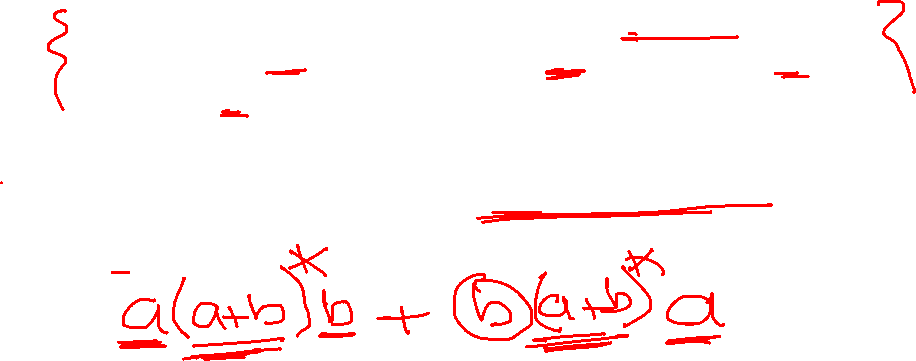 { }
a(a+b)*b + b(a+b)*a